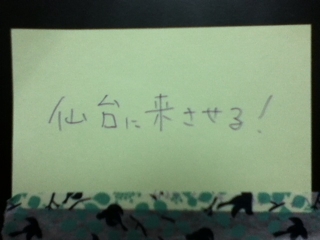 仙台に来させる!